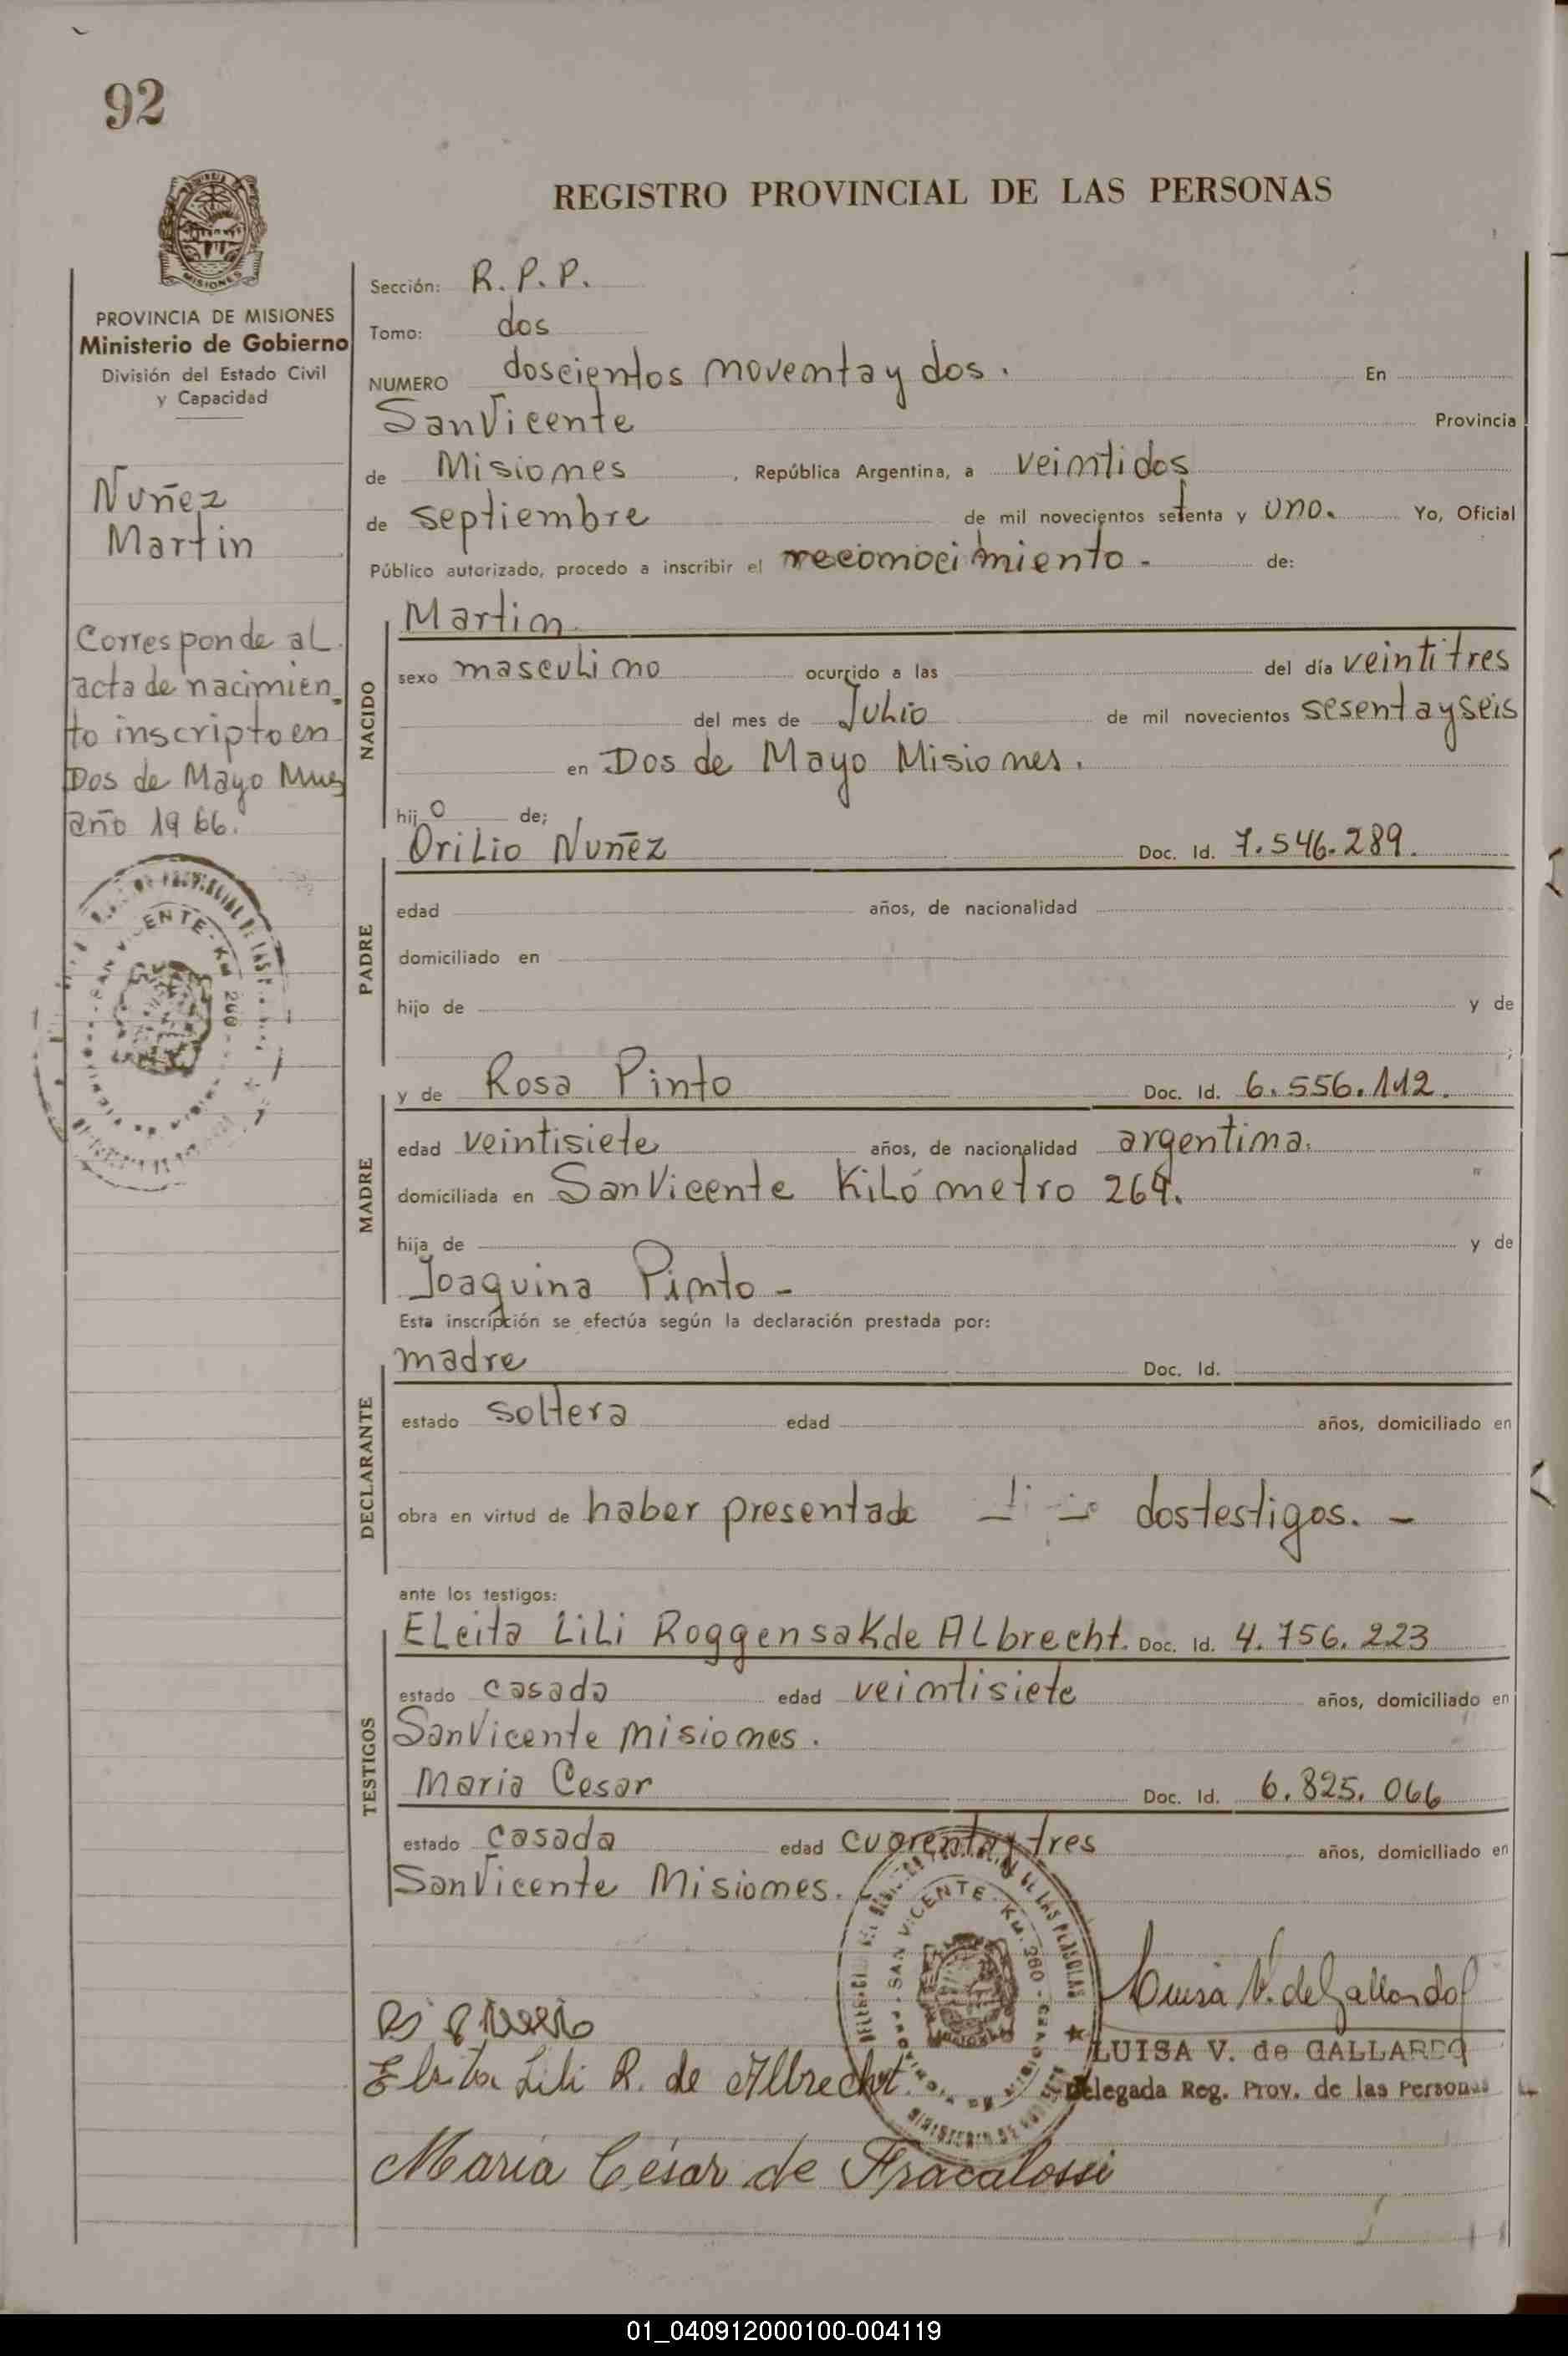 92
REGISTRO PROVINCIAL DE LAS PERSONAS
MISIONES
PROVINCIA DE MISIONES
Ministerio de Gobierno
División del Estado Civil
y Capacidad
Nuñez
Martin
Corresponde al
acta de nacimien
to inscripto en
Dos de Mayo Mnes
año 1966.
Sección: R. P. P.
Tomo: dos
NUMERO doscientos noventa y dos. En
San Vicente Provincia
de Misiones, República Argentina, a veintidos
de septiembre de mil novecientos setenta y uno. Yo, Oficial
Público autorizado, procedo a inscribir el reconocimiento - de:
NACIDO
Martin
sexo masculino ocurrido a las del día veintitres
del mes de Julio de mil novecientos sesenta y seis
en Dos de Mayo Misiones.
hijo de;
PADRE
Orilio Nuñez Doc. Id. 7.546.289.
edad años, de nacionalidad
domiciliado en
hijo de y de
;
MADRE
y de Rosa Pinto Doc. Id. 6.556.112.
edad veintisiete años, de nacionalidad argentina.
domiciliada en San Vicente Kilómetro 269.
hija de y de
Joaquina Pinto -
Esta inscripción se efectúa según la declaración prestada por:
DECLARANTE
madre Doc. Id.
estado soltera edad años, domiciliado en
obra en virtud de haber presentado dos testigos. -
ante los testigos:
TESTIGOS
Eleita Lili Roggensak de Albrecht. Doc. Id. 4.756.223
estado casada edad veintisiete años, domiciliado en
San Vicente Misiones.
Maria Cesar Doc. Id. 6.825.066
estado casada edad cuarenta y tres años, domiciliado en
San Vicente Misiones.
SAN VICENTE - KM. 260
Luisa V. de Gallardo
LUISA V. de GALLARDO
Delegada Reg. Prov. de las Personas
Lili R. de Albrecht
María César de Fracalossi
01_040912000100-004119